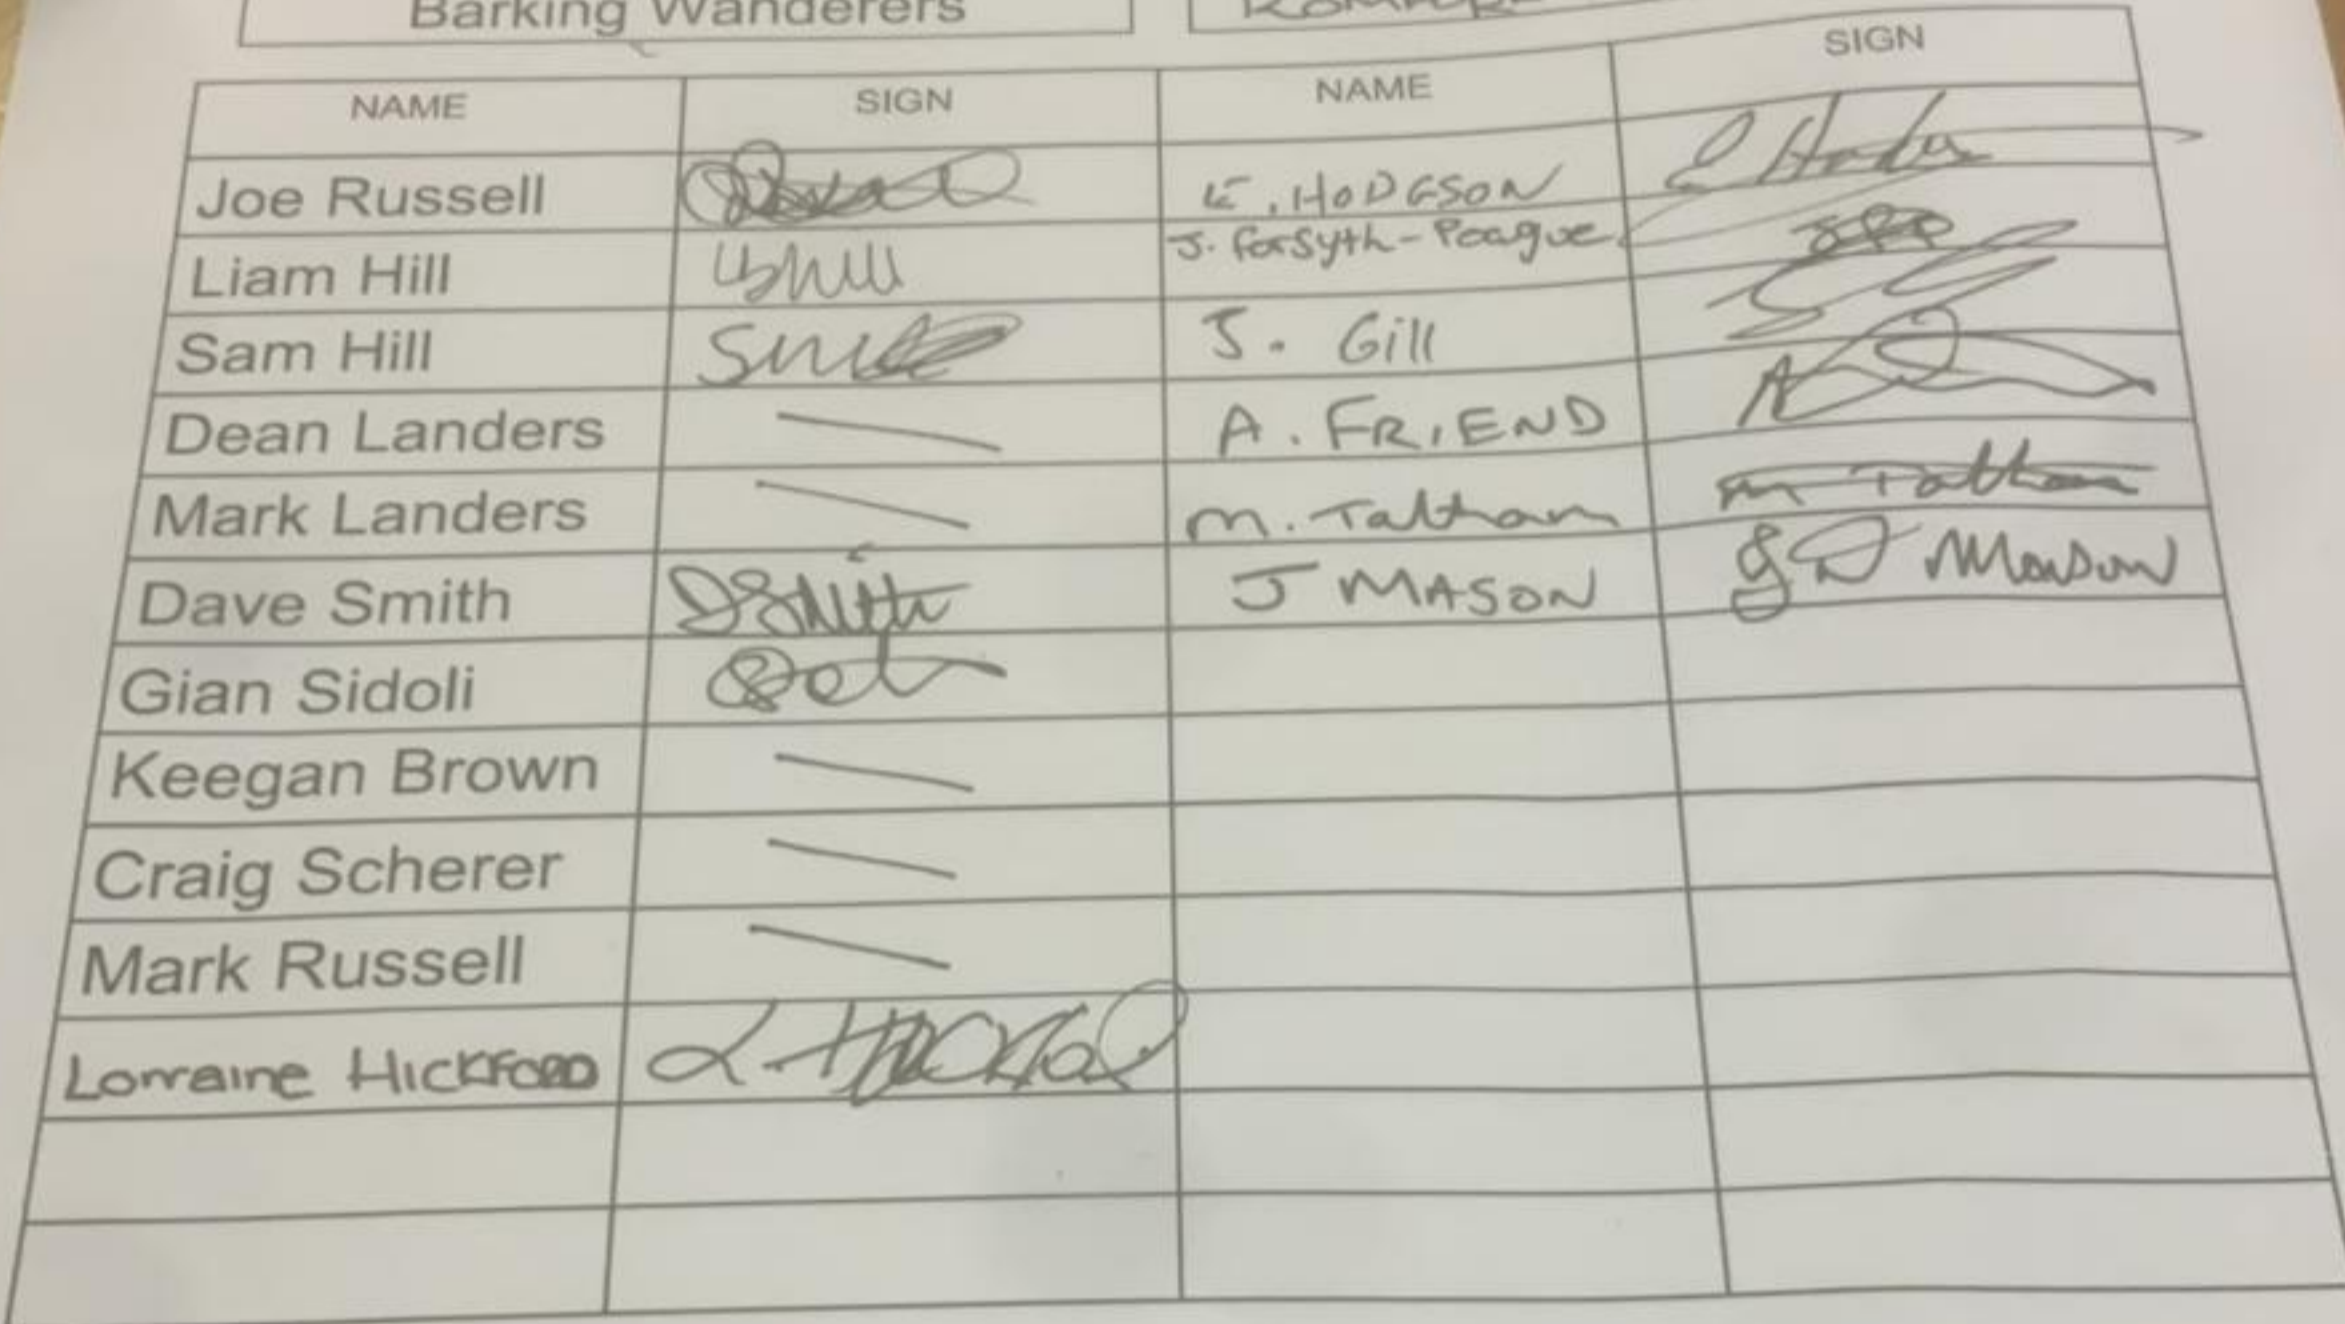 Barking Wanderers
NAME SIGN NAME SIGN
Joe Russell E. HODGSON
Liam Hill J. Forsyth-Peague
Sam Hill J. Gill
Dean Landers A. FRIEND
Mark Landers M. Taltham
Dave Smith DSmith J MASON JD Mason
Gian Sidoli
Keegan Brown
Craig Scherer
Mark Russell
Lorraine HICKFORD